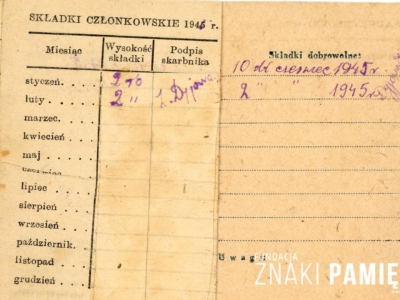 SKŁADKI CZŁONKOWSKIE 1946 r.
Miesiąc Wysokość składki Podpis skarbnika
styczeń. 2
luty 2 "
marzec.
kwiecień
maj
czerwiec
lipiec
sierpień
wrzesień
październik.
listopad
grudzień
Składki dobrowolne:
10 zł czerwiec 1945 r
2 " " 1945 r
Uwaga:
FUNDACJA
ZNAKI PAMIĘ